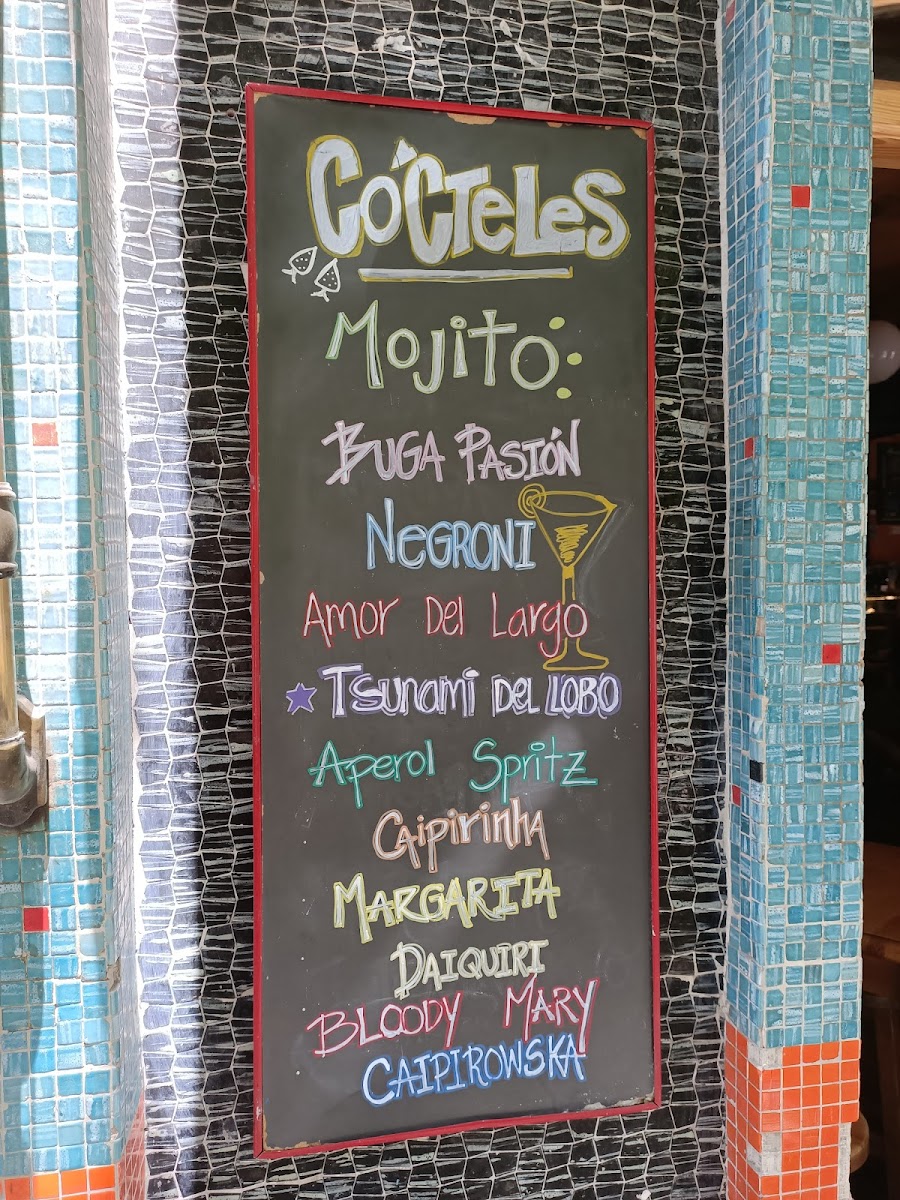 CóCTeLeS
MojiTo
BUGA PASIÓN
NeGRONI
Amor Del Largo
Tsunami DeL LOBO
Aperol Spritz
Caipirinha
MARGARITA
DAIQUIRI
BLOODY MARY
CAIPIROWSKA